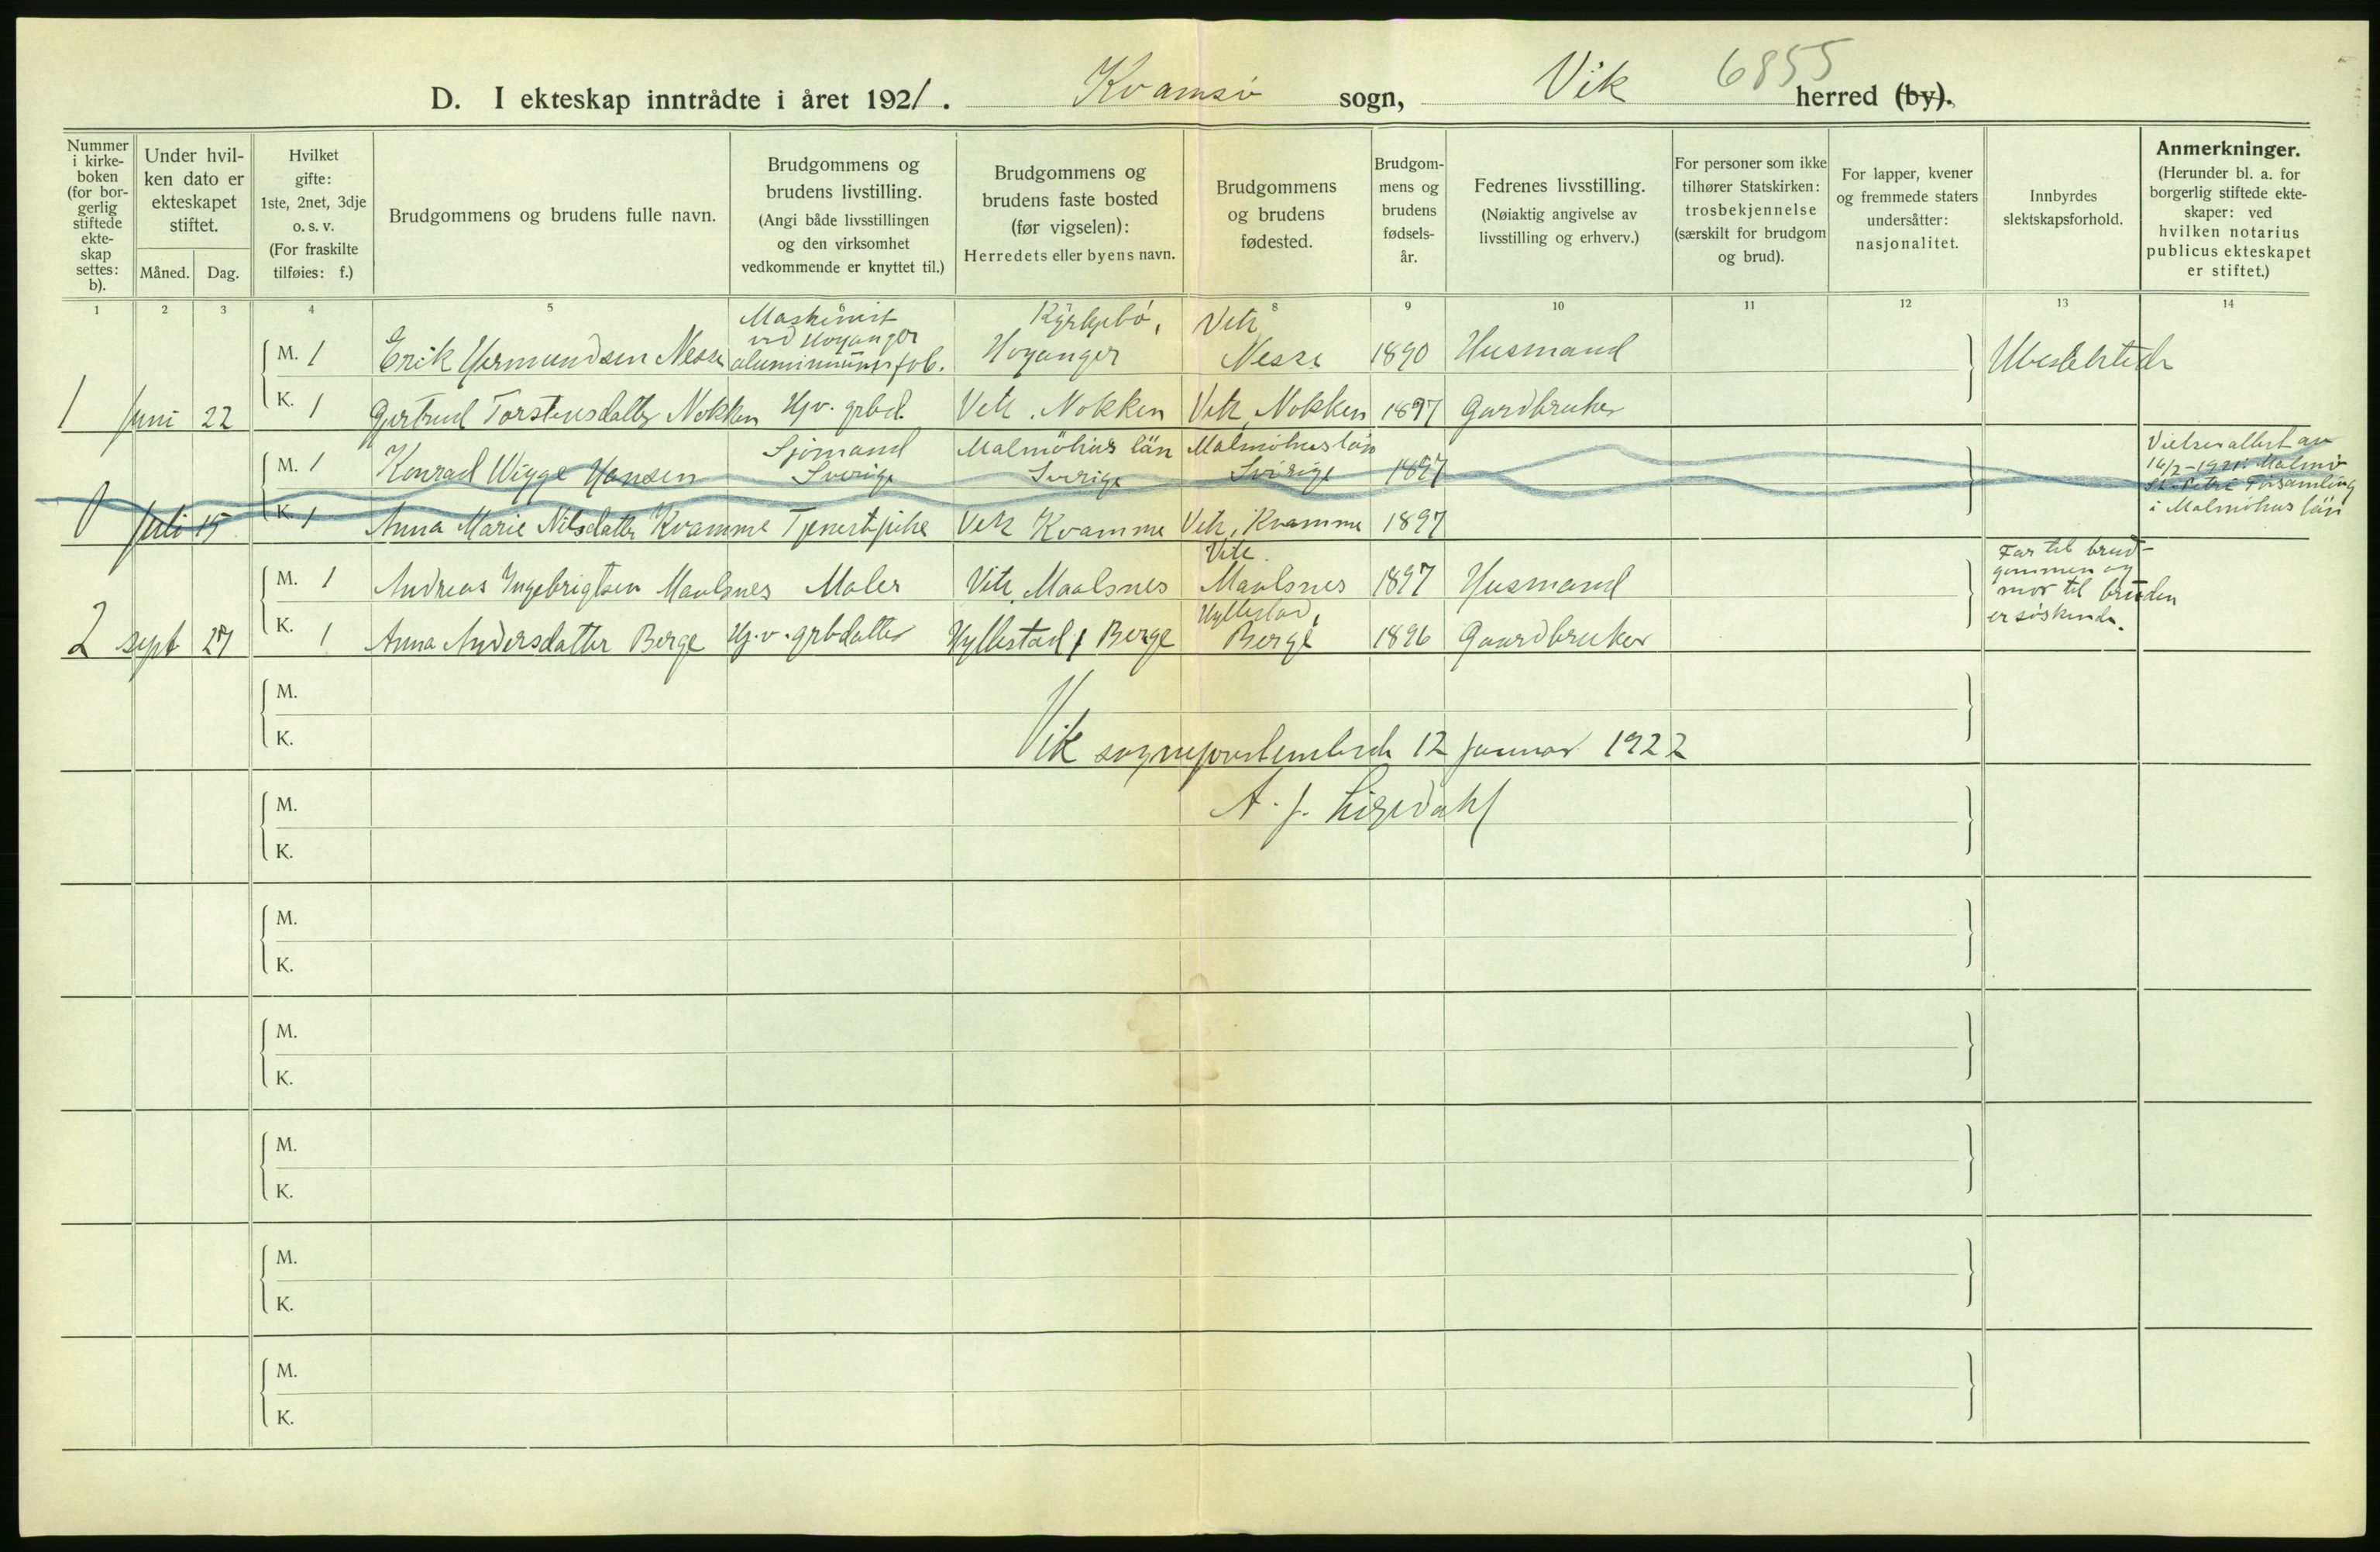 6855
D. I ekteskap inntrådte i året 1921. Kvamsø sogn, Vik herred (by).
Nummer i kirke- boken (for bor- gerlig stiftede ekte- skap settes: b).
Under hvil- ken dato er ekteskapet stiftet.
Måned. Dag.
Hvilket gifte: 1ste, 2net, 3dje o. s. v. (For fraskilte tilføies: f.)
Brudgommens og brudens fulle navn.
Brudgommens og brudens livstilling. (Angi både livsstillingen og den virksomhet vedkommende er knyttet til.)
Brudgommens og brudens faste bosted (før vigselen): Herredets eller byens navn.
Brudgommens og brudens fødested.
Brudgom- mens og brudens fødsels- år.
Fedrenes livsstilling. (Nøiaktig angivelse av livsstilling og erhverv.)
For personer som ikke tilhører Statskirken: trosbekjennelse (særskilt for brudgom og brud).
For lapper, kvener og fremmede staters undersåtter: nasjonalitet.
Innbyrdes slektskapsforhold.
Anmerkninger. (Herunder bl. a. for borgerlig stiftede ekte- skaper: ved hvilken notarius publicus ekteskapet er stiftet.)
1 2 3 4 5 6 7 8 9 10 11 12 13 14
M. 1 Erik Hermundsen Nesse Maskinist ved Høyanger aluminiumsfab. Kyrkjebø, Høyanger Vik Nesse 1890 Husmand Ubeslektede
1 Juni 22 K. 1 Gjertrud Torstensdatter Nokken Hj.v. grbd. Vik, Nokken Vik, Nokken 1897 Gardbruker
M. 1 Konrad Wigge Hansen Sjømand Sverige Malmöhus län Sverige Malmöhus län Sverige 1897 Vielsesattest av 14/2-1921. Malmö St. Petri Församling i Malmöhus län
0 Juli 15 K. 1 Anna Marie Nilsdatter Kvamme Tjenestpike Vik Kvamme Vik, Kvamme 1897
M. 1 Andreas Ingebrigtsen Maalsnes Maler Vik, Maalsnes Vik Maalsnes 1897 Husmand Far til brud- gommen og mor til bruden er søskende.
2 sept 27 K. 1 Anna Andersdatter Berge Hj.v. grbdatter Hyllestad, Berge Hyllestad, Berge 1896 Gaardbruker
M.
K.
Vik sogneprestembede 12 januar 1922
M. A. J. Ligedahl
K.
M.
K.
M.
K.
M.
K.
M.
K.
M.
K.
M.
K.